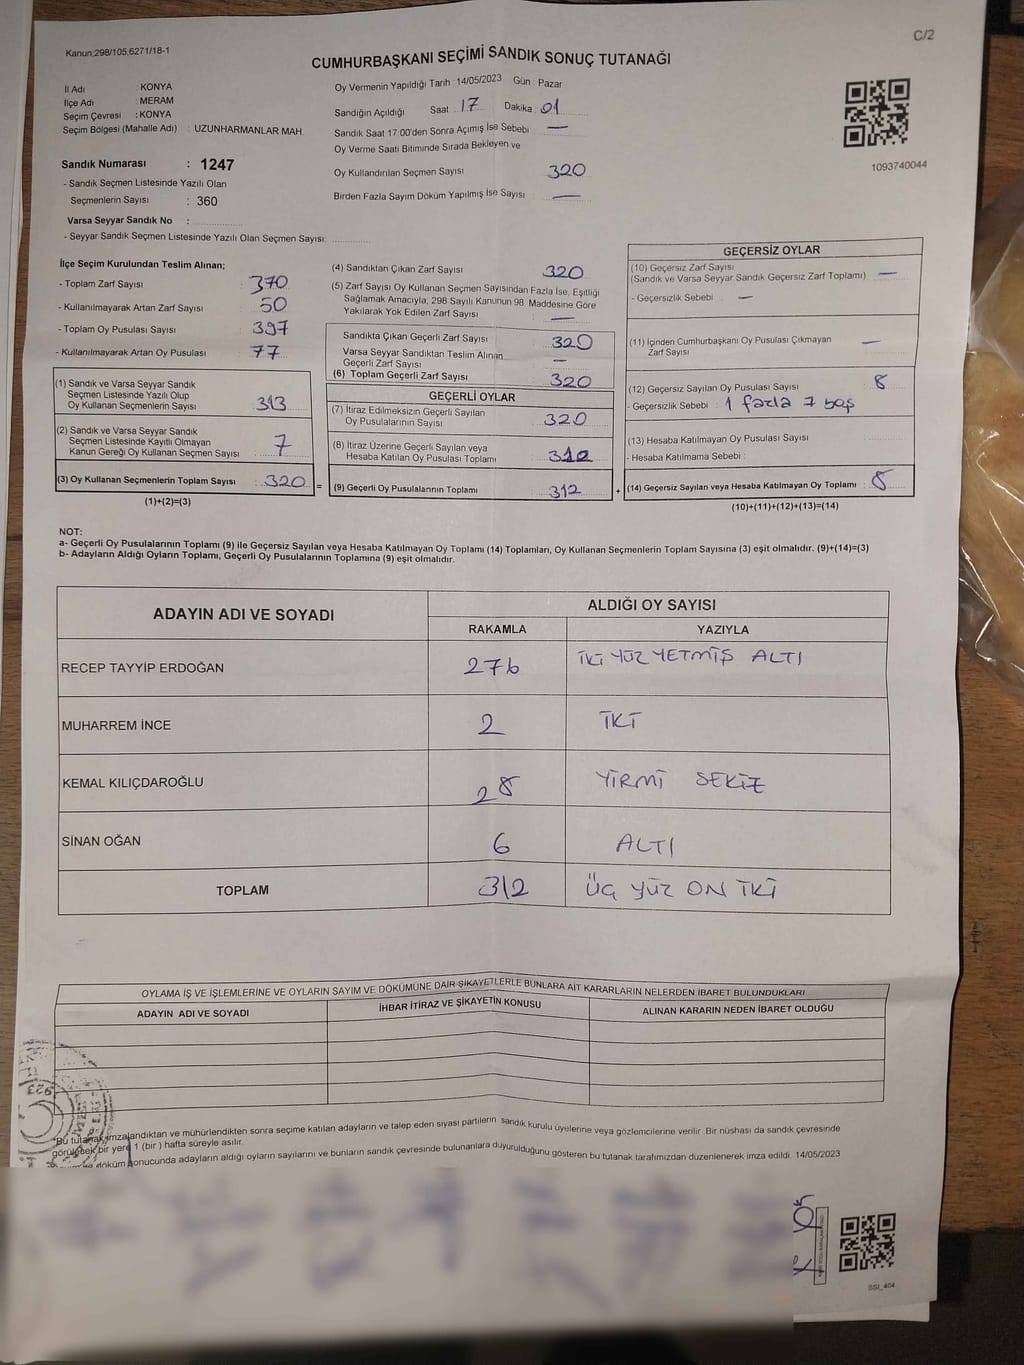 C/2
Kanun:298/105;6271/18-1
CUMHURBAŞKANI SEÇİMİ SANDIK SONUÇ TUTANAĞI
İl Adı : KONYA
İlçe Adı : MERAM
Seçim Çevresi : KONYA
Seçim Bölgesi (Mahalle Adı) : UZUNHARMANLAR MAH.
Sandık Numarası : 1247
- Sandık Seçmen Listesinde Yazılı Olan
Seçmenlerin Sayısı : 360
Varsa Seyyar Sandık No :
- Seyyar Sandık Seçmen Listesinde Yazılı Olan Seçmen Sayısı:
Oy Vermenin Yapıldığı Tarih : 14/05/2023 Gün : Pazar
Sandığın Açıldığı Saat : 17 Dakika : 01
Sandık Saat 17:00'den Sonra Açımış İse Sebebi : —
Oy Verme Saati Bitiminde Sırada Bekleyen ve
Oy Kullandırılan Seçmen Sayısı 320
Birden Fazla Sayım Döküm Yapılmış İse Sayısı : —
1093740044
İlçe Seçim Kurulundan Teslim Alınan;
- Toplam Zarf Sayısı : 370
- Kullanılmayarak Artan Zarf Sayısı : 50
- Toplam Oy Pusulası Sayısı : 397
- Kullanılmayarak Artan Oy Pusulası : 77
(1) Sandık ve Varsa Seyyar Sandık
Seçmen Listesinde Yazılı Olup
Oy Kullanan Seçmenlerin Sayısı : 313
(2) Sandık ve Varsa Seyyar Sandık
Seçmen Listesinde Kayıtlı Olmayan
Kanun Gereği Oy Kullanan Seçmen Sayısı : 7
(3) Oy Kullanan Seçmenlerin Toplam Sayısı : 320 =
(1)+(2)=(3)
(4) Sandıktan Çıkan Zarf Sayısı : 320
(5) Zarf Sayısı Oy Kullanan Seçmen Sayısından Fazla İse, Eşitliği
Sağlamak Amacıyla, 298 Sayılı Kanunun 98. Maddesine Göre
Yakılarak Yok Edilen Zarf Sayısı : —
Sandıkta Çıkan Geçerli Zarf Sayısı : 320
Varsa Seyyar Sandıktan Teslim Alınan
Geçerli Zarf Sayısı : —
(6) Toplam Geçerli Zarf Sayısı : 320
GEÇERLİ OYLAR
(7) İtiraz Edilmeksizin Geçerli Sayılan
Oy Pusulalarının Sayısı : 320
(8) İtiraz Üzerine Geçerli Sayılan veya
Hesaba Katılan Oy Pusulası Toplamı : 312
(9) Geçerli Oy Pusulalarının Toplamı : 312 +
GEÇERSİZ OYLAR
(10) Geçersiz Zarf Sayısı
(Sandık ve Varsa Seyyar Sandık Geçersiz Zarf Toplamı) : —
- Geçersizlik Sebebi : —
(11) İçinden Cumhurbaşkanı Oy Pusulası Çıkmayan
Zarf Sayısı : —
(12) Geçersiz Sayılan Oy Pusulası Sayısı : 8
- Geçersizlik Sebebi : 1 fazla 7 boş
(13) Hesaba Katılmayan Oy Pusulası Sayısı :
- Hesaba Katılmama Sebebi :
(14) Geçersiz Sayılan veya Hesaba Katılmayan Oy Toplamı : 8
(10)+(11)+(12)+(13)=(14)
NOT:
a- Geçerli Oy Pusulalarının Toplamı (9) ile Geçersiz Sayılan veya Hesaba Katılmayan Oy Toplamı (14) Toplamları, Oy Kullanan Seçmenlerin Toplam Sayısına (3) eşit olmalıdır. (9)+(14)=(3)
b- Adayların Aldığı Oyların Toplamı, Geçerli Oy Pusulalarının Toplamına (9) eşit olmalıdır.
ADAYIN ADI VE SOYADI
ALDIĞI OY SAYISI
RAKAMLA YAZIYLA
RECEP TAYYİP ERDOĞAN 276 İKİ YÜZ YETMİŞ ALTI
MUHARREM İNCE 2 İKİ
KEMAL KILIÇDAROĞLU 28 YİRMİ SEKİZ
SİNAN OĞAN 6 ALTI
TOPLAM 312 ÜÇ YÜZ ON İKİ
OYLAMA İŞ VE İŞLEMLERİNE VE OYLARIN SAYIM VE DÖKÜMÜNE DAİR ŞİKAYETLERLE BUNLARA AİT KARARLARIN NELERDEN İBARET BULUNDUKLARI
ADAYIN ADI VE SOYADI İHBAR İTİRAZ VE ŞİKAYETİN KONUSU ALINAN KARARIN NEDEN İBARET OLDUĞU
923
*Bu tutanak imzalandıktan ve mühürlendikten sonra seçime katılan adayların ve talep eden siyasi partilerin sandık kurulu üyelerine veya gözlemcilerine verilir. Bir nüshası da sandık çevresinde
görülecek bir yere 1 (bir) hafta süreyle asılır.
döküm sonucunda adayların aldığı oyların sayılarını ve bunların sandık çevresinde bulunanlara duyurulduğunu gösteren bu tutanak tarafımızdan düzenlenerek imza edildi. 14/05/2023
SSI_404